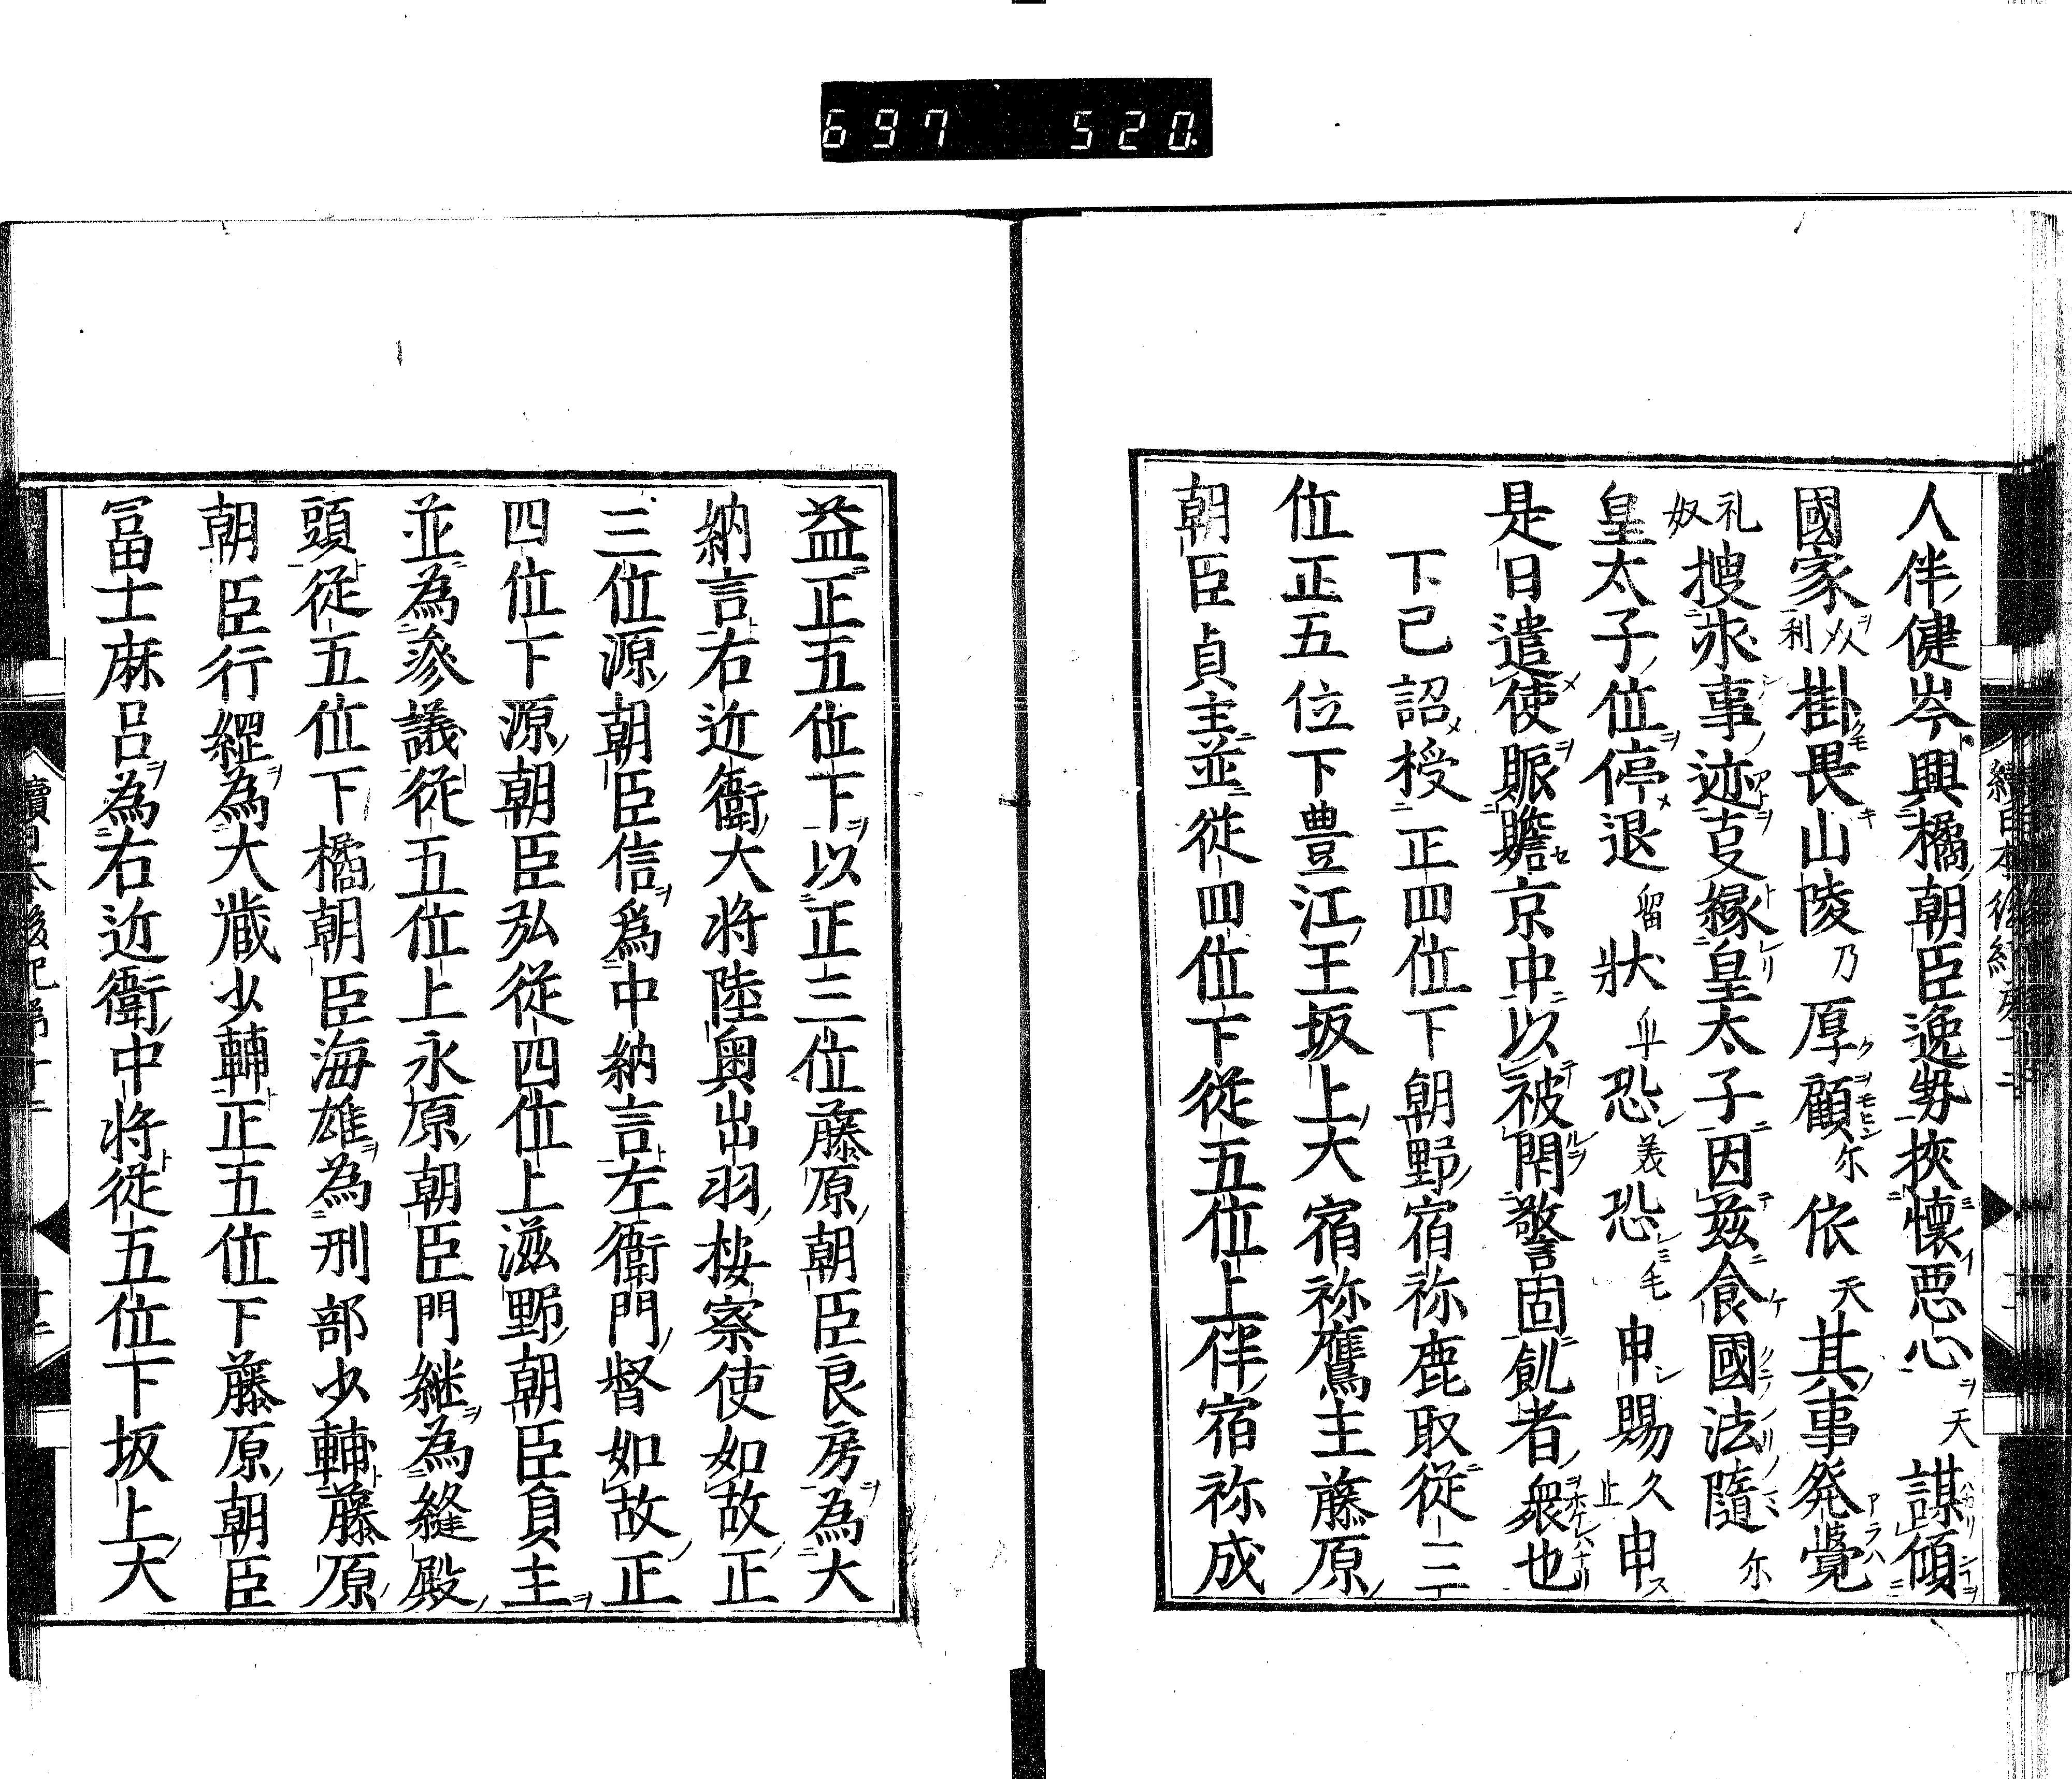 697 520
人伴健岑興橘朝臣逸勢挾懷惡心天謀傾
國家利掛畏山陵乃厚顧尓依天其事発覺
礼奴捜求事迹叓縁皇太子因茲食國法隨尓
皇太子位停退留狀乎恐美恐毛申賜久止申
是日遣使賑贍京中以被閇警固飢者衆也
下已詔授正四位下朝野宿祢鹿取從三
位正五位下豊江王坂上大宿祢鷹主藤原
朝臣貞主並從四位下從五位上伴宿祢成
益正五位下以正三位藤原朝臣良房為大
納言右近衛大将陸奥出羽按察使如故正
三位源朝臣信為中納言左衛門督如故正
四位下源朝臣弘從四位上滋野朝臣貞主
並為參議從五位上永原朝臣門継為縫殿
頭從五位下橘朝臣海雄為刑部少輔藤原
朝臣行縄為大蔵少輔正五位下藤原朝臣
冨士麻呂為右近衛中将從五位下坂上大
續日本後紀